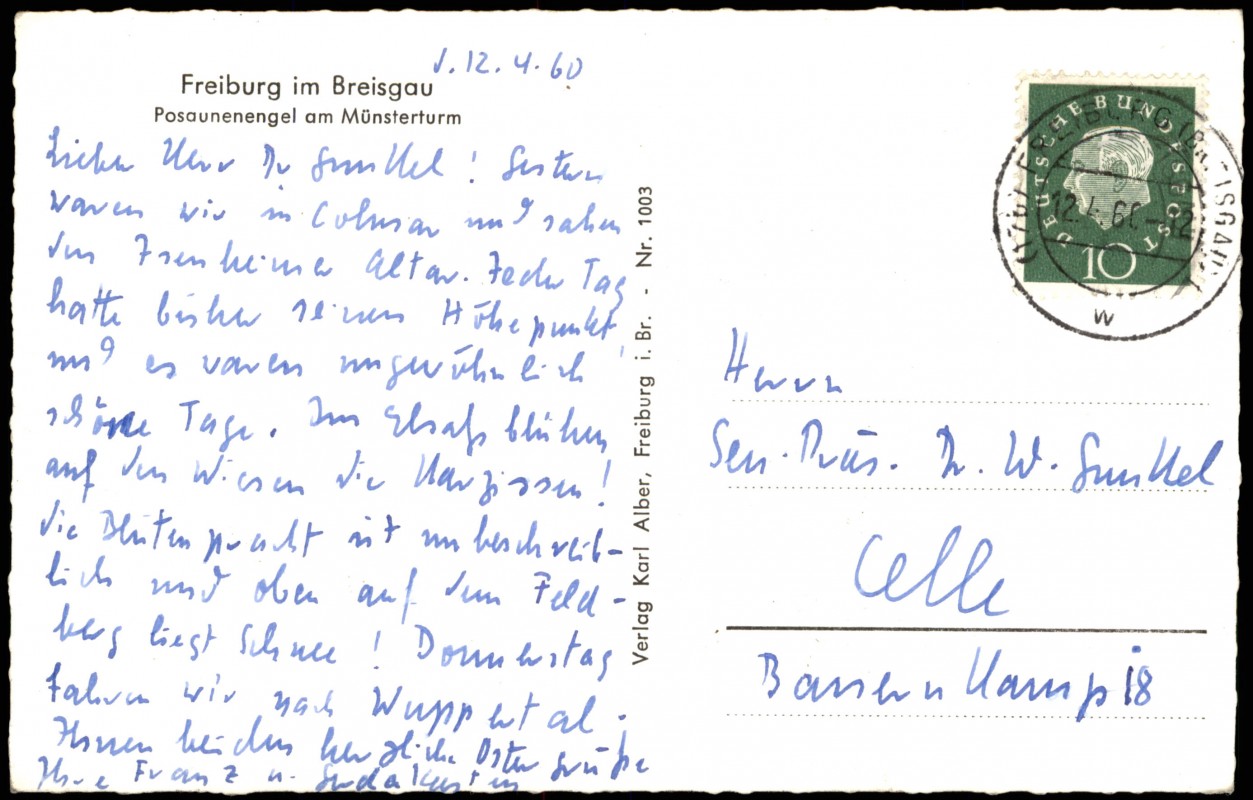 d. 12.4.60
Freiburg im Breisgau
Posaunenengel am Münsterturm
Lieber Herr Dr Gunkel! Gestern
waren wir in Colmar und sahen
den Isenheimer Altar. Jeder Tag
hatte bisher seinen Höhepunkt,
und es waren ungewöhnlich
schöne Tage. Im Elsaß blühen
auf den Wiesen die Narzissen!
die Blütenpracht ist unbeschreib-
lich und oben auf dem Feld-
berg liegt Schnee! Donnerstag
fahren wir nach Wuppertal.
Ihnen beiden herzliche Ostergrüße
Ihre Franz u.
Verlag Karl Alber, Freiburg i. Br. - Nr. 1003
DEUTSCHE BUNDESPOST
10
FREIBURG (BREISGAU)
12.4.60-12
w
Herrn
Sen. Präs. Dr. W. Gunkel
Celle
Bannenkamp 18